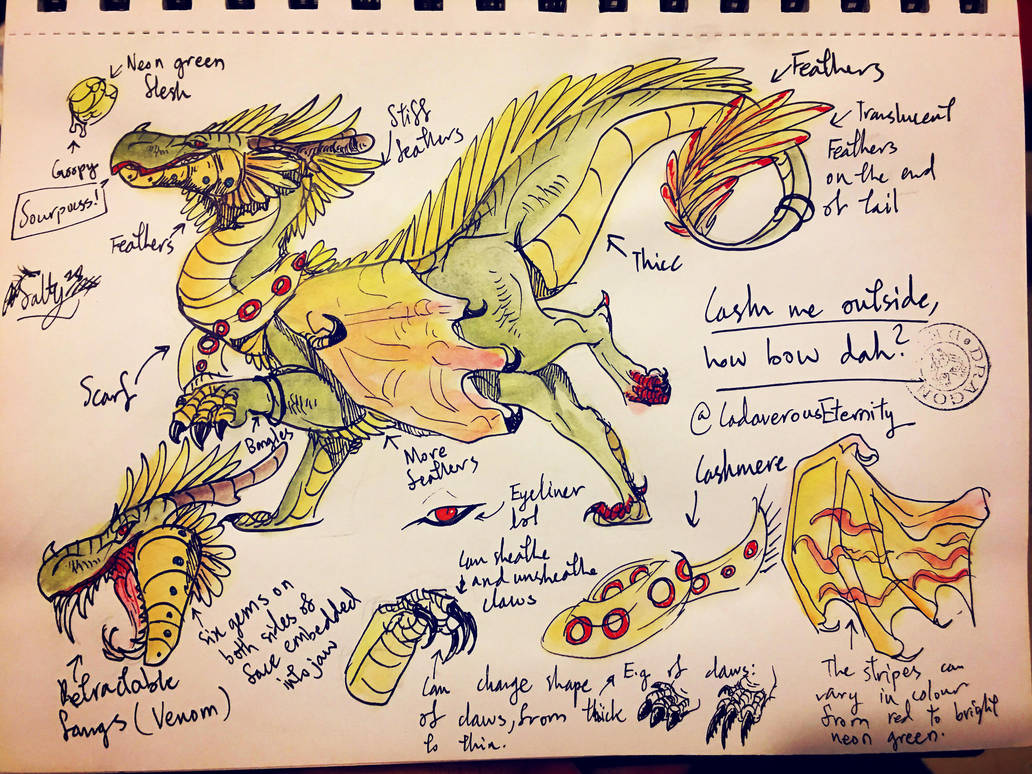 Neon green
flesh
Goopy
Sourpuss!
Feathers
Salty
Stiff
feathers
Feathers
Translucent
Feathers
on the end
of tail
Thicc
Cashn me outside,
how bow dah?
DRAGON
@CadaverousEternity
Scarf
Bangles
More
feathers
Eyeliner
lol
Cashmere
Can sheathe
and unsheathe
claws
Six gems on
both sides of
face embedded
into jaw
Retractable
fangs (Venom)
Can change shape
of claws, from thick
to thin.
E.g of claws:
The stripes can
vary in colour
from red to bright
neon green.